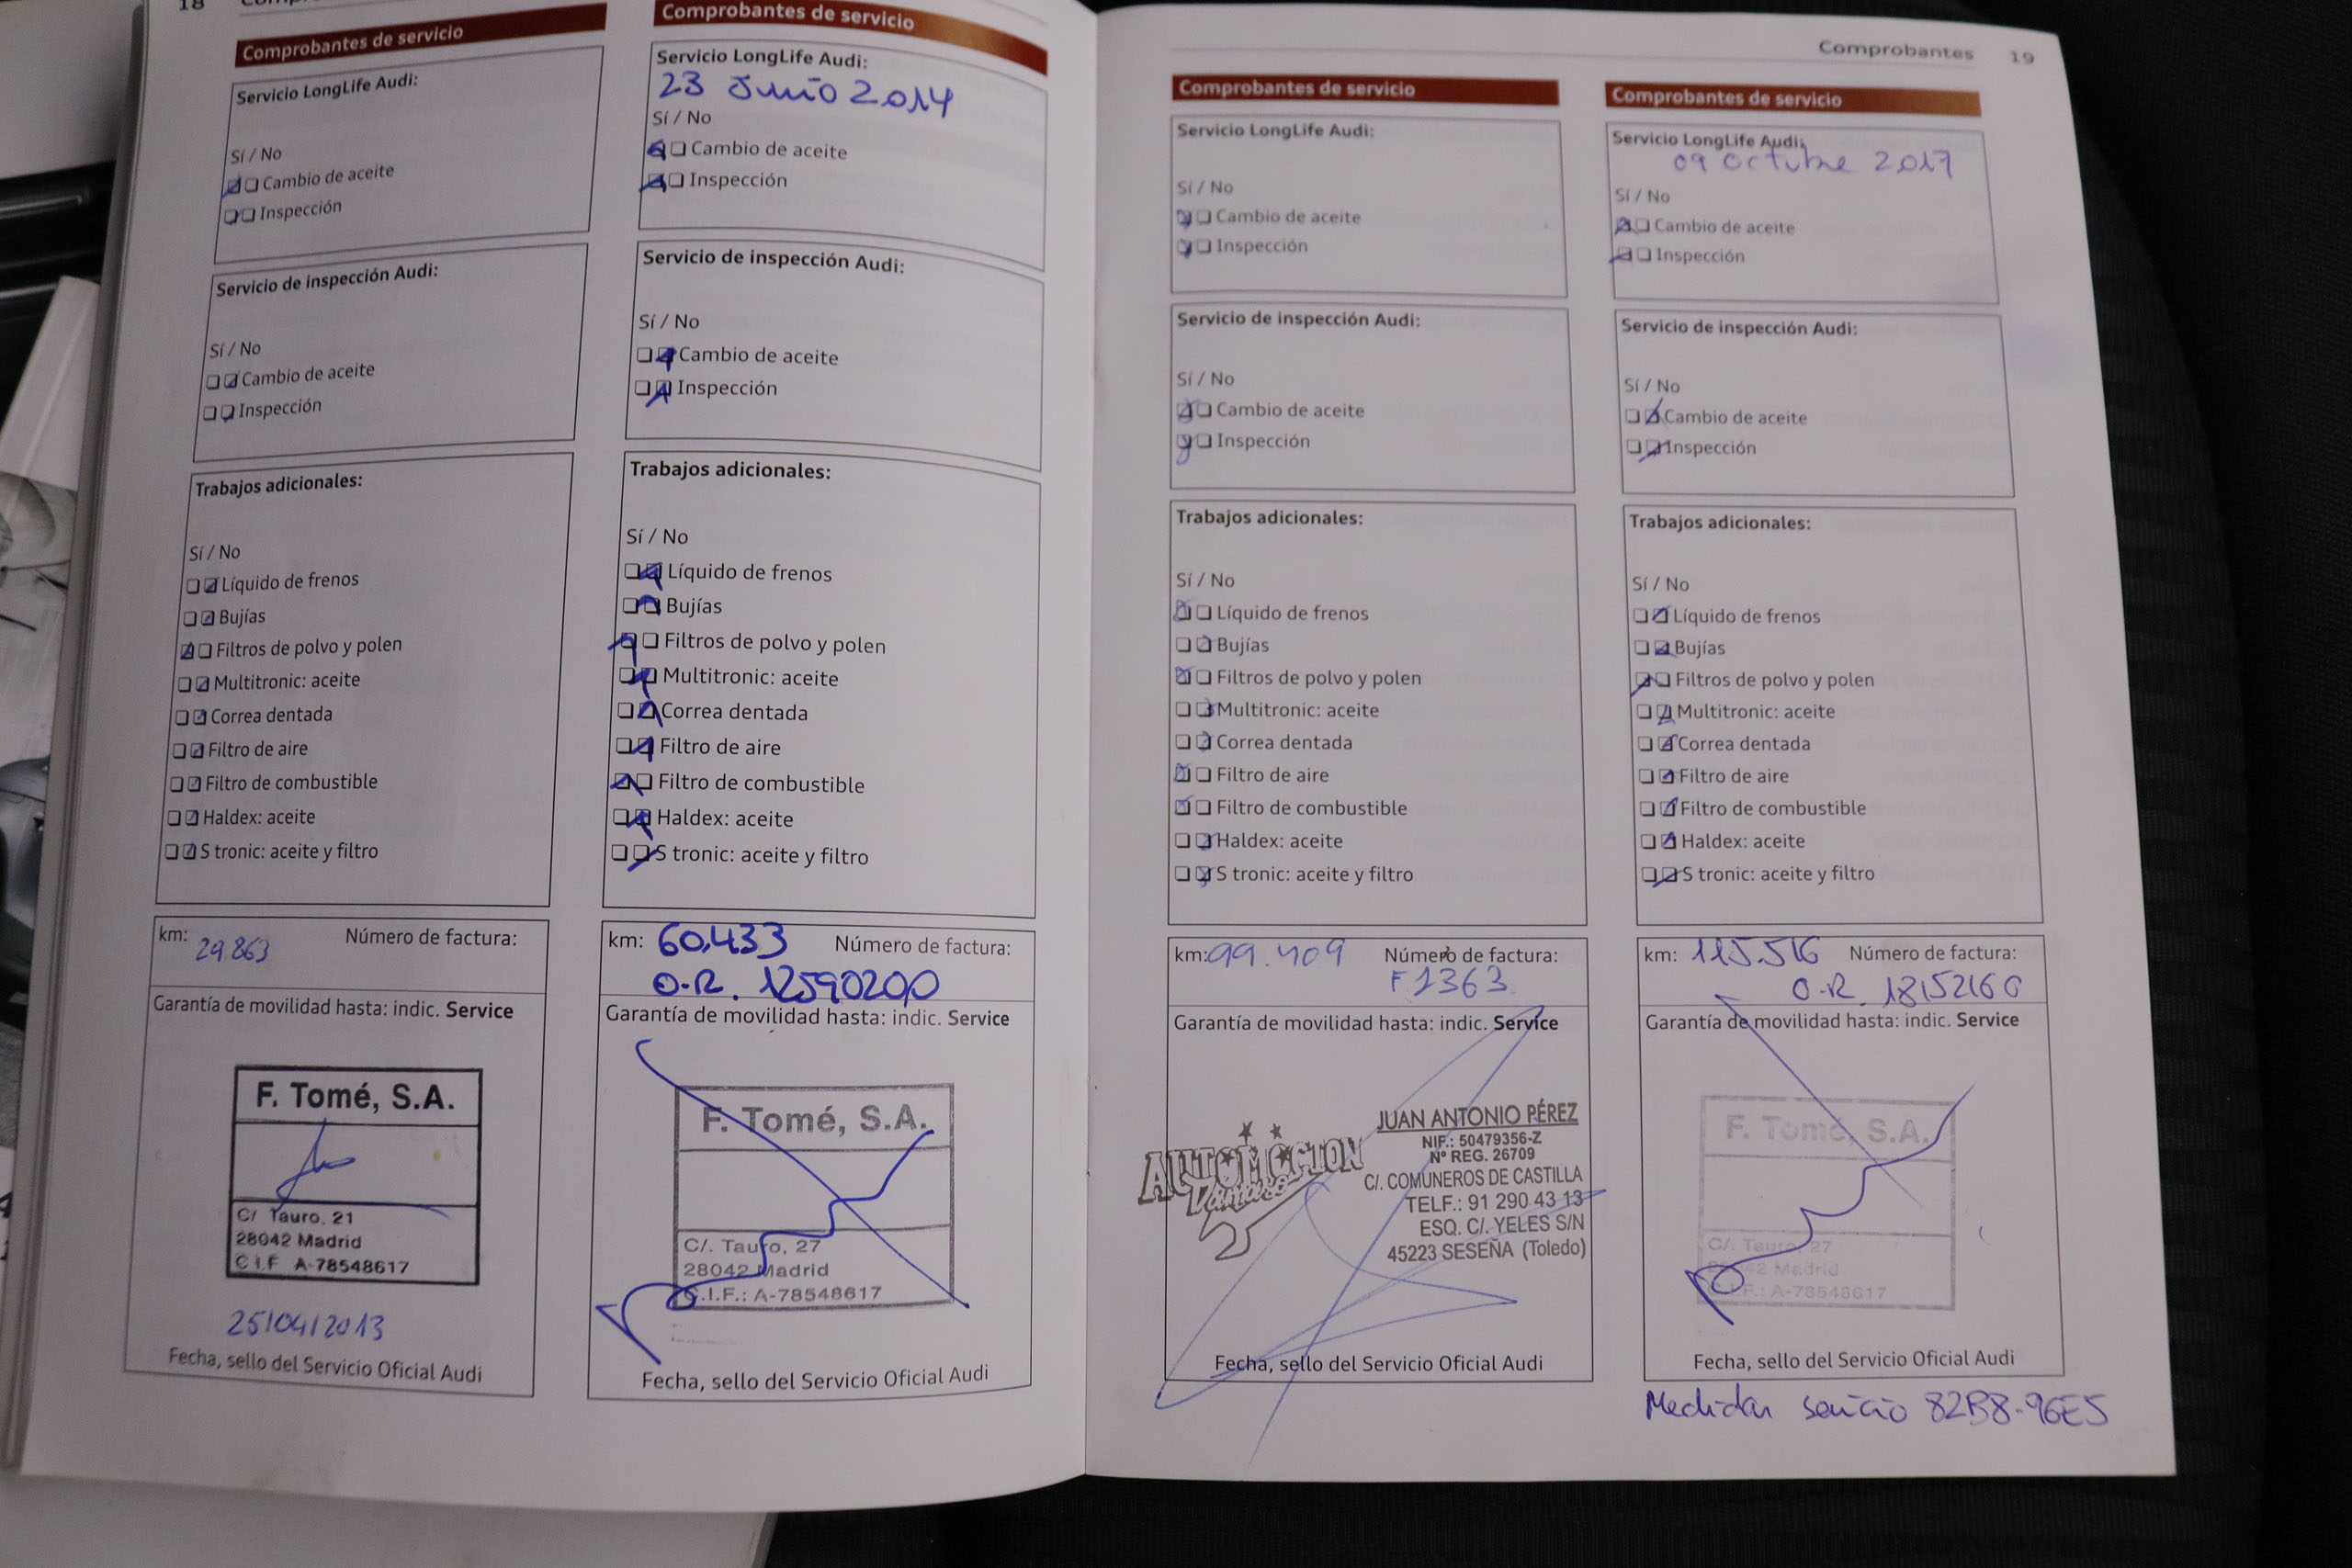 18
Comprobantes de servicio
Servicio LongLife Audi:
Sí / No
Cambio de aceite
Inspección
Servicio de inspección Audi:
Sí / No
Cambio de aceite
Inspección
Trabajos adicionales:
Sí / No
Líquido de frenos
Bujías
Filtros de polvo y polen
Multitronic: aceite
Correa dentada
Filtro de aire
Filtro de combustible
Haldex: aceite
S tronic: aceite y filtro
km: 29.863 Número de factura:
Garantía de movilidad hasta: indic. Service
F. Tomé, S.A.
C/ Tauro, 21
28042 Madrid
C.I.F A-78548617
25/04/2013
Fecha, sello del Servicio Oficial Audi
Comprobantes de servicio
Servicio LongLife Audi:
23 Junio 2014
Sí / No
Cambio de aceite
Inspección
Servicio de inspección Audi:
Sí / No
Cambio de aceite
Inspección
Trabajos adicionales:
Sí / No
Líquido de frenos
Bujías
Filtros de polvo y polen
Multitronic: aceite
Correa dentada
Filtro de aire
Filtro de combustible
Haldex: aceite
S tronic: aceite y filtro
km: 60.433 Número de factura:
O.R. 12590200
Garantía de movilidad hasta: indic. Service
F. Tomé, S.A.
C/. Tauro, 27
28042 Madrid
C.I.F.: A-78548617
Fecha, sello del Servicio Oficial Audi
Comprobantes 19
Comprobantes de servicio
Servicio LongLife Audi:
Sí / No
Cambio de aceite
Inspección
Servicio de inspección Audi:
Sí / No
Cambio de aceite
Inspección
Trabajos adicionales:
Sí / No
Líquido de frenos
Bujías
Filtros de polvo y polen
Multitronic: aceite
Correa dentada
Filtro de aire
Filtro de combustible
Haldex: aceite
S tronic: aceite y filtro
km: 99.409 Número de factura:
F1363
Garantía de movilidad hasta: indic. Service
AUTOMOCION
JUAN ANTONIO PÉREZ
NIF.: 50479356-Z
Nº REG. 26709
C/. COMUNEROS DE CASTILLA
TELF.: 91 290 43 13
ESQ. C/. YELES S/N
45223 SESEÑA (Toledo)
Fecha, sello del Servicio Oficial Audi
Comprobantes de servicio
Servicio LongLife Audi:
09 octubre 2017
Sí / No
Cambio de aceite
Inspección
Servicio de inspección Audi:
Sí / No
Cambio de aceite
Inspección
Trabajos adicionales:
Sí / No
Líquido de frenos
Bujías
Filtros de polvo y polen
Multitronic: aceite
Correa dentada
Filtro de aire
Filtro de combustible
Haldex: aceite
S tronic: aceite y filtro
km: 115.516 Número de factura:
O.R. 18152160
Garantía de movilidad hasta: indic. Service
F. Tomé, S.A.
C/. Tauro, 27
28042 Madrid
C.I.F.: A-78548617
Fecha, sello del Servicio Oficial Audi
Medidas servicio 82B8-96E5